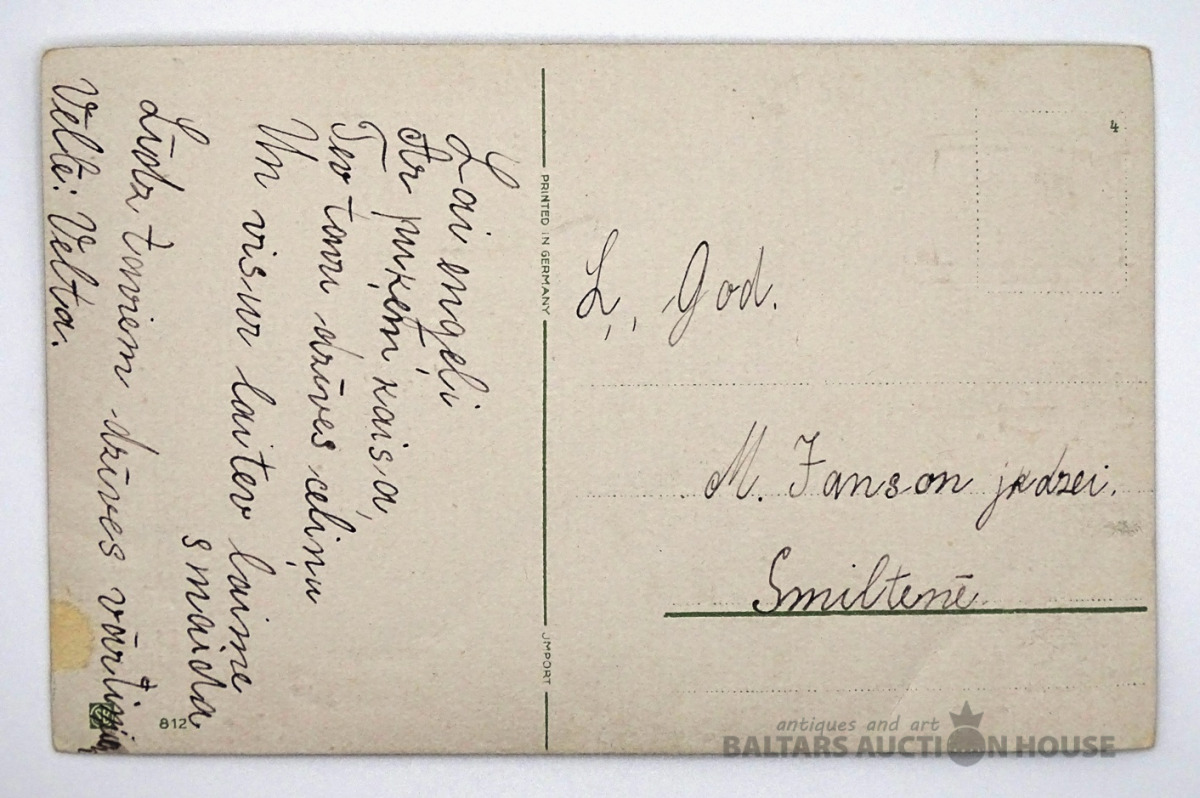 Lai engeļi
Ar puķēm kaisa,
Tev tavu dzīves celiņu
Un visur lai tev laime
smaida
Līdz taviem dzīves vārtiņiem,
Veltī: Velta.
PRINTED IN GERMANY
JMPORT
4
Ļ., God.
M. Janson jkdzei.
Smiltenē
812
antiques and art
BALTARS AUCTION HOUSE